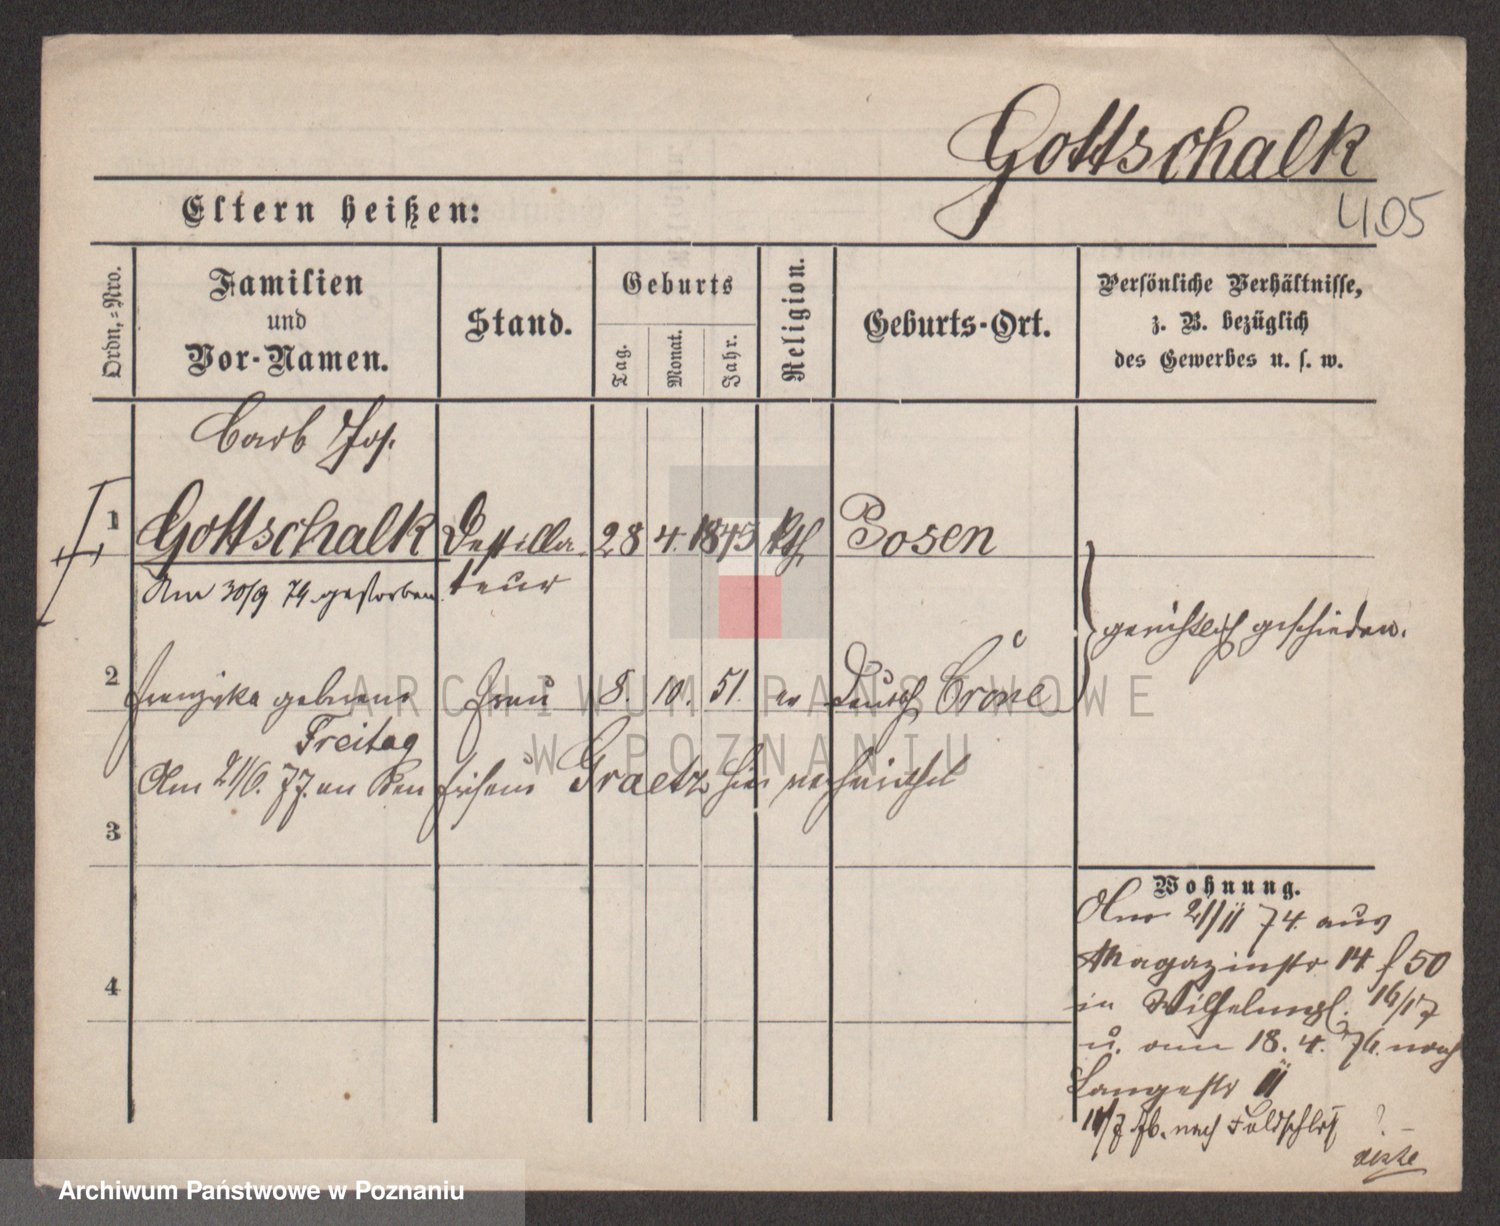 Gottschalk
405
Eltern heißen:
Ordn.-Nro.
Familien
und
Vor-Namen.
Stand.
Geburts
Tag.
Monat.
Jahr.
Religion.
Geburts-Ort.
Persönliche Verhältnisse,
z. B. bezüglich
des Gewerbes u. s. w.
Carl Jos.
1 Gottschalk Destilla- 28 4. 1845 kth Posen
teur
Am 30/9 74 gestorben
gerichtlich geschieden.
2 Franziska geborene Frau 8. 10. 51. Deutsch Crone
Freitag
Am 21/6. 77. an den Friseur Graetz hier verheirathet
3
4
Wohnung.
Am 21/II 74. aus
Magazinstr 14 f 50
in Wilhelmspl. 16/17
u. am 18. 4. 76. nach
Langestr II
11/7 76. nach Feldschloß
ARCHIWUM PAŃSTWOWE
W POZNANIU
Archiwum Państwowe w Poznaniu